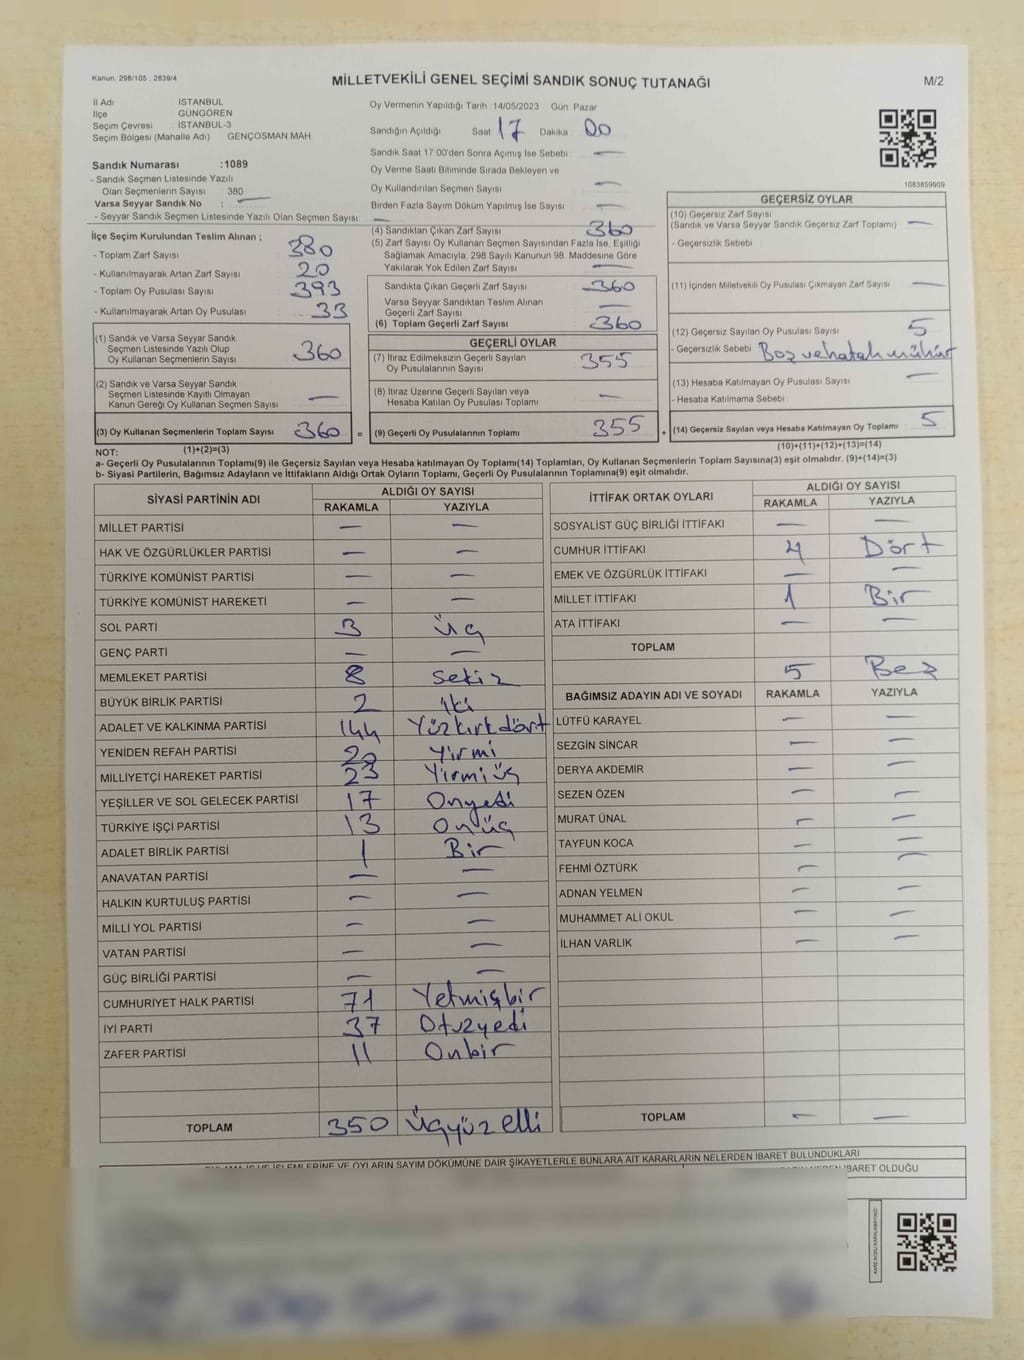 Kanun: 298/105 , 2839/4
MİLLETVEKİLİ GENEL SEÇİMİ SANDIK SONUÇ TUTANAĞI
M/2
İl Adı : İSTANBUL
İlçe : GÜNGÖREN
Seçim Çevresi : İSTANBUL-3
Seçim Bölgesi (Mahalle Adı) GENÇOSMAN MAH.
Sandık Numarası :1089
- Sandık Seçmen Listesinde Yazılı
Olan Seçmenlerin Sayısı 380
Varsa Seyyar Sandık No : —
- Seyyar Sandık Seçmen Listesinde Yazılı Olan Seçmen Sayısı: —
Oy Vermenin Yapıldığı Tarih :14/05/2023 Gün: Pazar
Sandığın Açıldığı Saat: 17 Dakika : 00
Sandık Saat 17:00'den Sonra Açılmış İse Sebebi : —
Oy Verme Saati Bitiminde Sırada Bekleyen ve
Oy Kullandırılan Seçmen Sayısı —
Birden Fazla Sayım Döküm Yapılmış İse Sayısı —
1083859909
İlçe Seçim Kurulundan Teslim Alınan ;
- Toplam Zarf Sayısı 380
- Kullanılmayarak Artan Zarf Sayısı 20
- Toplam Oy Pusulası Sayısı 393
- Kullanılmayarak Artan Oy Pusulası 33
(1) Sandık ve Varsa Seyyar Sandık
Seçmen Listesinde Yazılı Olup
Oy Kullanan Seçmenlerin Sayısı 360
(2) Sandık ve Varsa Seyyar Sandık
Seçmen Listesinde Kayıtlı Olmayan
Kanun Gereği Oy Kullanan Seçmen Sayısı —
(3) Oy Kullanan Seçmenlerin Toplam Sayısı 360
(4) Sandıktan Çıkan Zarf Sayısı 360
(5) Zarf Sayısı Oy Kullanan Seçmen Sayısından Fazla İse, Eşitliği
Sağlamak Amacıyla; 298 Sayılı Kanunun 98. Maddesine Göre
Yakılarak Yok Edilen Zarf Sayısı —
Sandıkta Çıkan Geçerli Zarf Sayısı 360
Varsa Seyyar Sandıktan Teslim Alınan
Geçerli Zarf Sayısı —
(6) Toplam Geçerli Zarf Sayısı 360
GEÇERLİ OYLAR
(7) İtiraz Edilmeksizin Geçerli Sayılan
Oy Pusulalarının Sayısı 355
(8) İtiraz Üzerine Geçerli Sayılan veya
Hesaba Katılan Oy Pusulası Toplamı —
= (9) Geçerli Oy Pusulalarının Toplamı 355
GEÇERSİZ OYLAR
(10) Geçersiz Zarf Sayısı
(Sandık ve Varsa Seyyar Sandık Geçersiz Zarf Toplamı) —
- Geçersizlik Sebebi :
(11) İçinden Milletvekili Oy Pusulası Çıkmayan Zarf Sayısı —
(12) Geçersiz Sayılan Oy Pusulası Sayısı 5
- Geçersizlik Sebebi : Boz ve hatalı mühür
(13) Hesaba Katılmayan Oy Pusulası Sayısı —
- Hesaba Katılmama Sebebi :
+ (14) Geçersiz Sayılan veya Hesaba Katılmayan Oy Toplamı 5
NOT: (1)+(2)=(3)
(10)+(11)+(12)+(13)=(14)
a- Geçerli Oy Pusulalarının Toplamı(9) ile Geçersiz Sayılan veya Hesaba Katılmayan Oy Toplamı(14) Toplamları, Oy Kullanan Seçmenlerin Toplam Sayısına(3) eşit olmalıdır. (9)+(14)=(3)
b- Siyasi Partilerin, Bağımsız Adayların ve İttifakların Aldığı Ortak Oyların Toplamı, Geçerli Oy Pusulalarının Toplamına(9) eşit olmalıdır.
SİYASİ PARTİNİN ADI ALDIĞI OY SAYISI
RAKAMLA YAZIYLA
MİLLET PARTİSİ — —
HAK VE ÖZGÜRLÜKLER PARTİSİ — —
TÜRKİYE KOMÜNİST PARTİSİ — —
TÜRKİYE KOMÜNİST HAREKETİ — —
SOL PARTİ 3 üç
GENÇ PARTİ — —
MEMLEKET PARTİSİ 8 sekiz
BÜYÜK BİRLİK PARTİSİ 2 iki
ADALET VE KALKINMA PARTİSİ 144 Yüzkırkdört
YENİDEN REFAH PARTİSİ 20 Yirmi
MİLLİYETÇİ HAREKET PARTİSİ 23 Yirmi üç
YEŞİLLER VE SOL GELECEK PARTİSİ 17 Onyedi
TÜRKİYE İŞÇİ PARTİSİ 13 Onüç
ADALET BİRLİK PARTİSİ 1 Bir
ANAVATAN PARTİSİ — —
HALKIN KURTULUŞ PARTİSİ — —
MİLLİ YOL PARTİSİ — —
VATAN PARTİSİ — —
GÜÇ BİRLİĞİ PARTİSİ — —
CUMHURİYET HALK PARTİSİ 71 Yetmişbir
İYİ PARTİ 37 Otuzyedi
ZAFER PARTİSİ 11 Onbir
TOPLAM 350 Üçyüz elli
İTTİFAK ORTAK OYLARI ALDIĞI OY SAYISI
RAKAMLA YAZIYLA
SOSYALİST GÜÇ BİRLİĞİ İTTİFAKI — —
CUMHUR İTTİFAKI 4 Dört
EMEK VE ÖZGÜRLÜK İTTİFAKI — —
MİLLET İTTİFAKI 1 Bir
ATA İTTİFAKI — —
TOPLAM 5 Beş
BAĞIMSIZ ADAYIN ADI VE SOYADI RAKAMLA YAZIYLA
LÜTFÜ KARAYEL — —
SEZGİN SİNCAR — —
DERYA AKDEMİR — —
SEZEN ÖZEN — —
MURAT ÜNAL — —
TAYFUN KOCA — —
FEHMİ ÖZTÜRK — —
ADNAN YELMEN — —
MUHAMMET ALİ OKUL — —
İLHAN VARLIK — —
TOPLAM — —
İŞLEMLERİNE VE OYLARIN SAYIM DÖKÜMÜNE DAİR ŞİKAYETLERLE BUNLARA AİT KARARLARIN NELERDEN İBARET BULUNDUKLARI
İBARET OLDUĞU